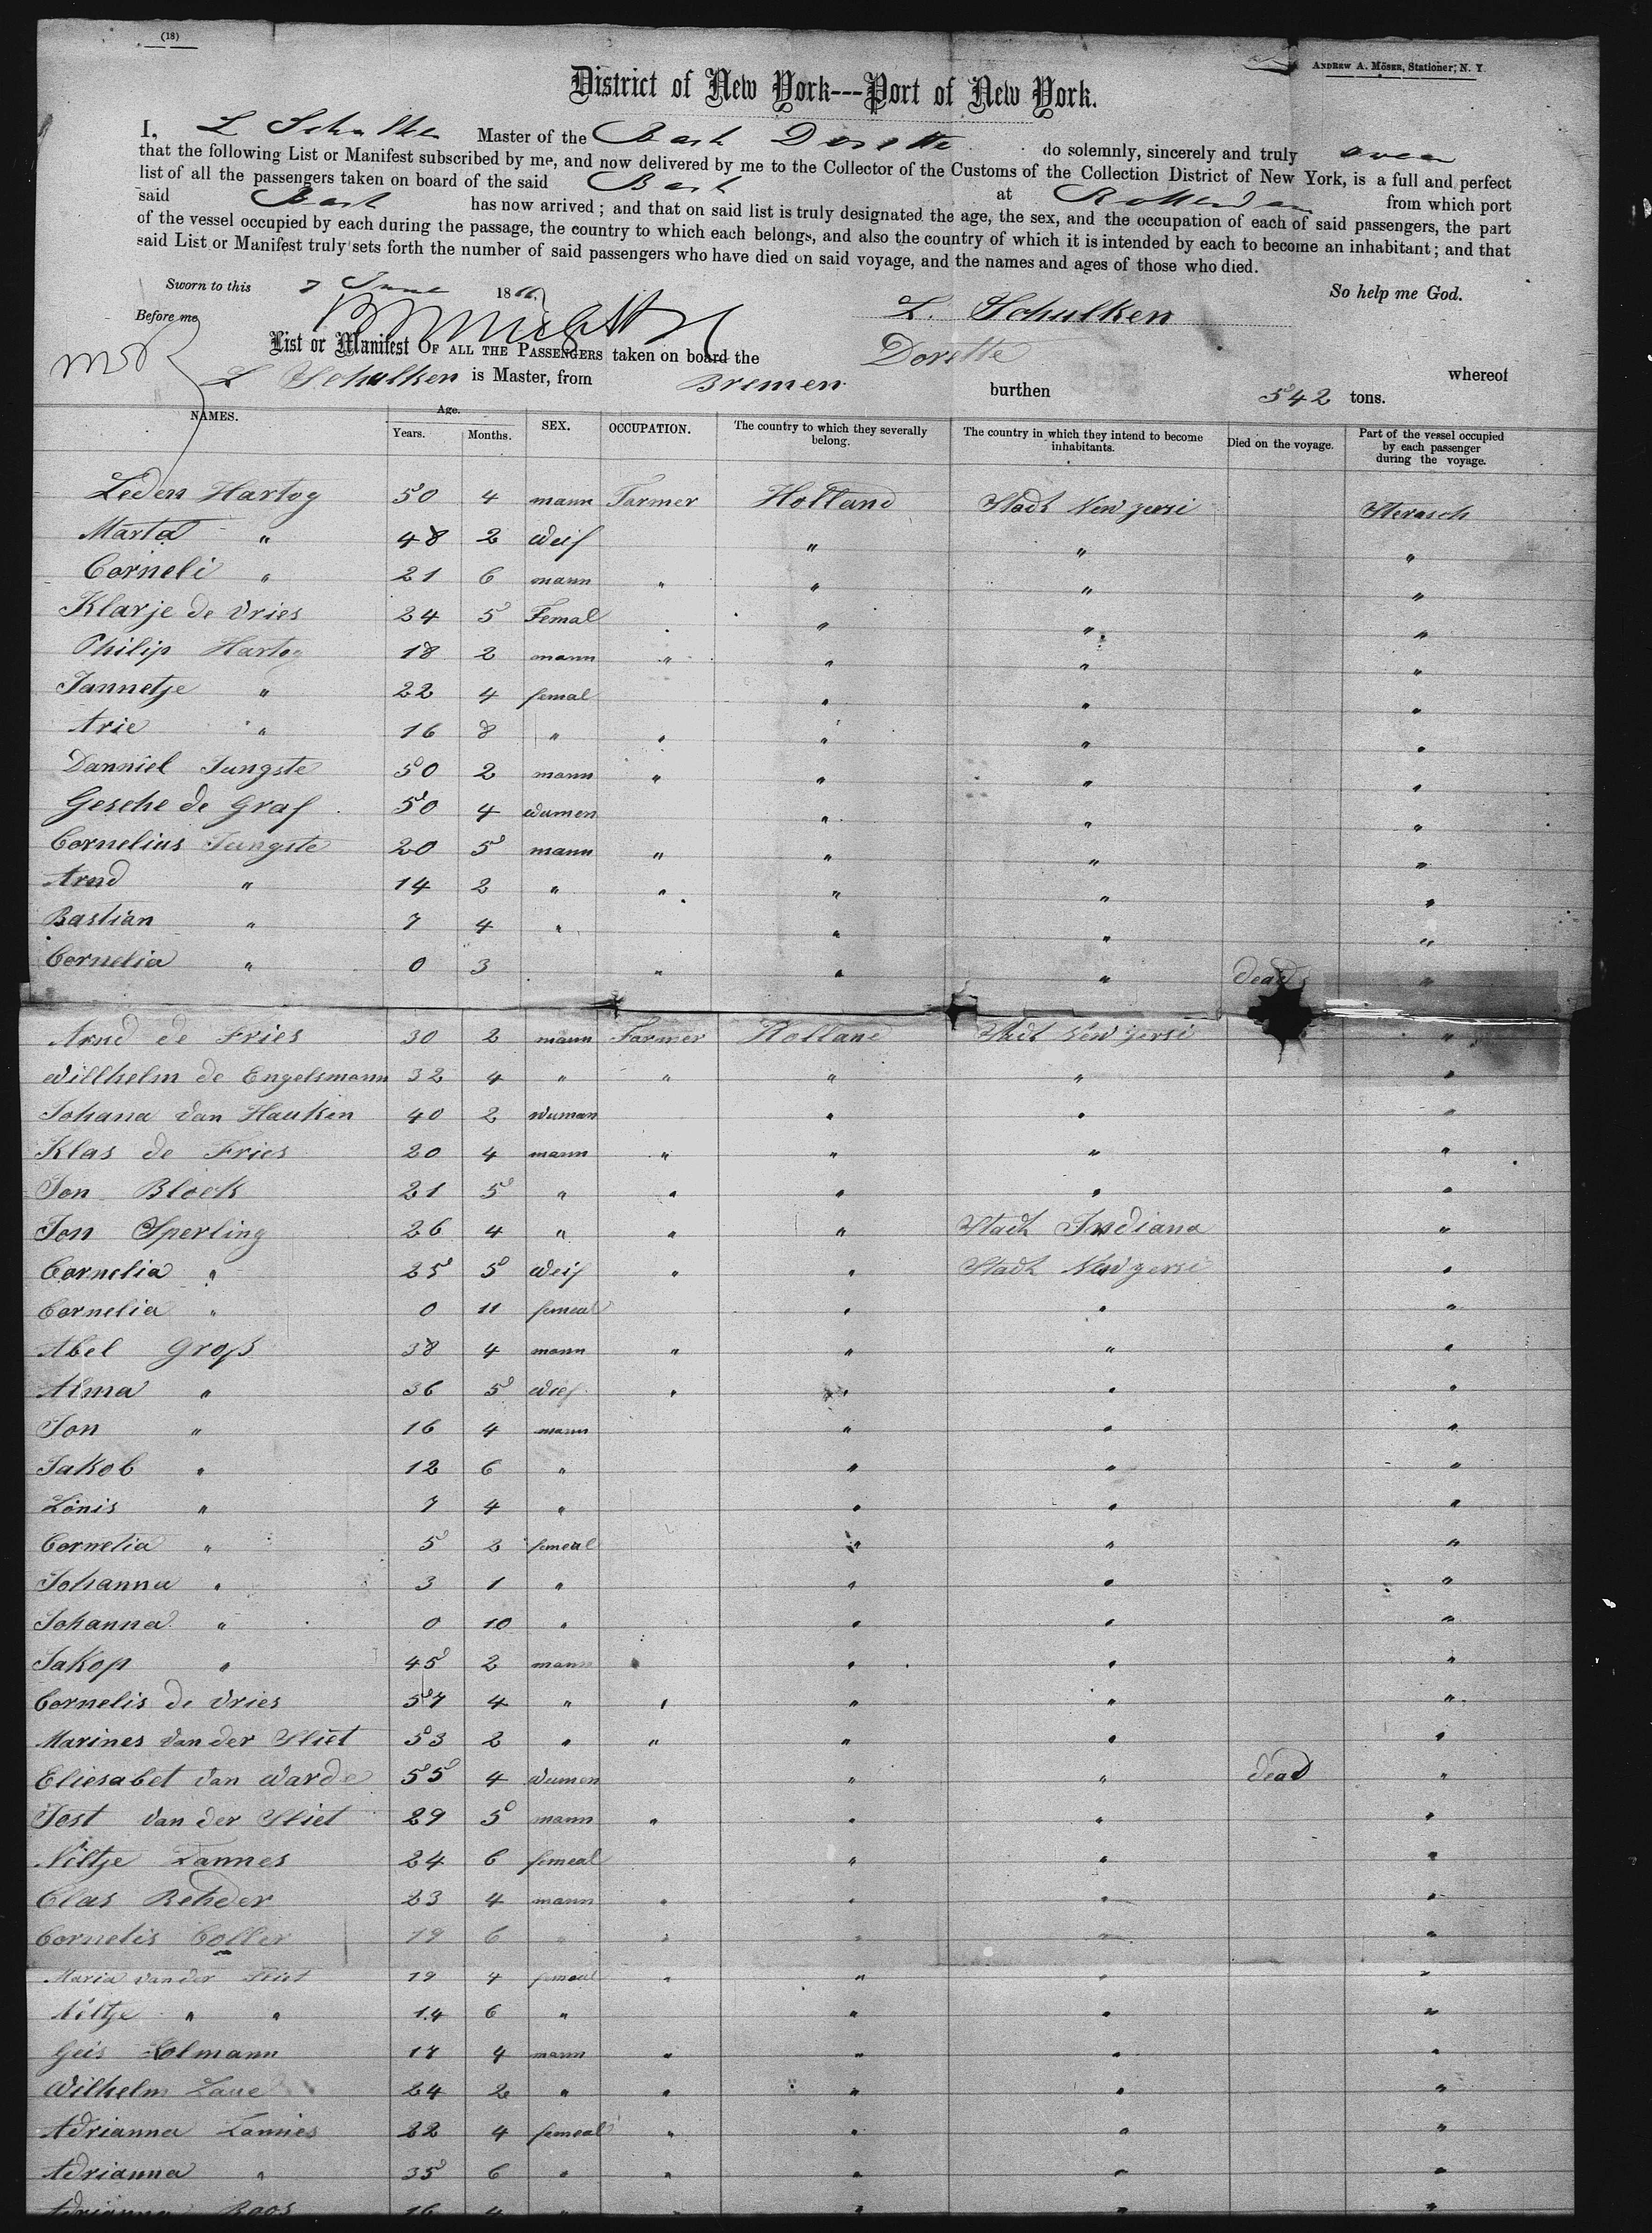 (18)
ANDREW A. MÖSER, Stationer, N. Y.
District of New York---Port of New York.
I, L Schulken Master of the Bark Dorette do solemnly, sincerely and truly swear
that the following List or Manifest subscribed by me, and now delivered by me to the Collector of the Customs of the Collection District of New York, is a full and perfect
list of all the passengers taken on board of the said Bark at Rotterdam from which port
said Bark has now arrived; and that on said list is truly designated the age, the sex, and the occupation of each of said passengers, the part
of the vessel occupied by each during the passage, the country to which each belongs, and also the country of which it is intended by each to become an inhabitant; and that
said List or Manifest truly sets forth the number of said passengers who have died on said voyage, and the names and ages of those who died.
Sworn to this 7 June 1866 So help me God.
Before me L. Schulken
List or Manifest OF ALL THE PASSENGERS taken on board the Dorette whereof
L Schulken is Master, from Bremen burthen 542 tons.
NAMES. Age. Years. Months. SEX. OCCUPATION. The country to which they severally belong. The country in which they intend to become inhabitants. Died on the voyage. Part of the vessel occupied by each passenger during the voyage.
Leden Hartog 50 4 mann Farmer Holland Stadt New yersi Sterasch
Marta " 48 2 Weif " " "
Corneli " 21 6 mann " " " "
Klarje de Vries 24 5 Femal " " "
Philip Hartog 18 2 mann " " " "
Jannetje " 22 4 femal " " "
Arie " 16 8 " " " " "
Danniel Jungste 50 2 mann " " " "
Gesche de Graf 50 4 wumen " " "
Cornelius Jungste 20 5 mann " " " "
Arnd " 14 2 " " " " "
Bastian " 7 4 " " " "
Cornelia " 0 3 " " " dead "
Arnd de Fries 30 2 mann Farmer Holland Stadt New yersi "
Willhelm de Engelsmann 32 4 " " " " "
Johana van Hauken 40 2 wuman " " "
Klas de Fries 20 4 mann " " " "
Jon Block 21 5 " " " " "
Jon Sperling 26 4 " " " Stadt Indiana "
Cornelia " 25 5 Weif " " Stadt New yersi "
Cornelia " 0 11 femeal " " "
Abel Groß 38 4 mann " " " "
Alma " 36 5 Wief " " " "
Jon " 16 4 mann " " "
Jakob " 12 6 " " " "
Lönis " 7 4 " " " "
Cornelia " 5 2 femeal " " "
Johanna " 3 1 " " " "
Johanna " 0 10 " " " "
Jakop " 45 2 mann " " " "
Cornelis de Vries 57 4 " " " " "
Marines van der Sliet 53 2 " " " " "
Eliesabet van Warde 55 4 Wumen " " dead "
Jost van der Sliet 29 5 mann " " " "
Neltje Lannes 24 6 femeal " " "
Clas Rehder 23 4 mann " " " "
Cornelis Coller 19 6 " " " " "
Maria van der Sliet 19 4 femeal " " " "
Neltje " " 14 6 " " " "
Geis Kolmann 17 4 mann " " " "
Wilhelm Laue 24 2 " " " " "
Adrianna Lannies 22 4 femeal " " " "
Adrianna " 35 6 " " " " "
Adrianna Roos 16 4 " " " "